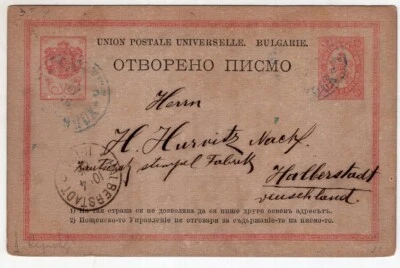 UNION POSTALE UNIVERSELLE. BULGARIE.
ОТВОРЕНО ПИСМО
Herrn
H. Hurwitz Nachf.
Kautschuk stempel Fabrik
Halberstadt
Deutschland.
HALBERSTADT
1) На тая страна се не дозволява да се пише друго освен адресътъ.
2) Пощенско-то Управление не отговаря за съдържание-то на писмо-то.